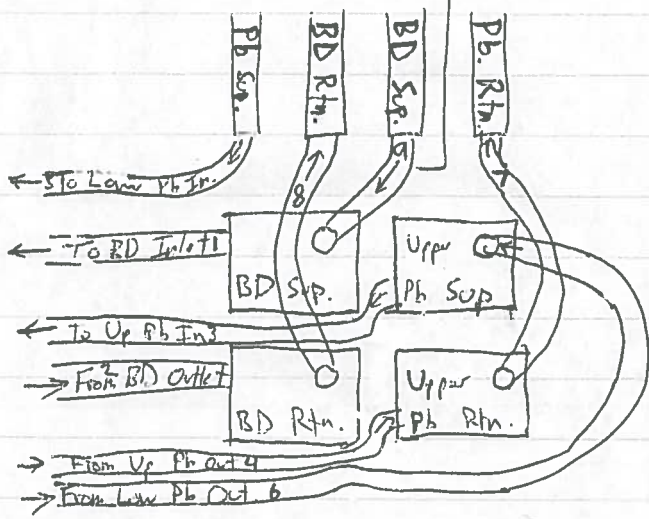 Pb Sup.
BD Rtn.
BD Sup.
Pb. Rtn.
5 To Low Pb In.
8
9
7
To BD Inlet 1
BD Sup.
Upper
Pb Sup
To Up Pb In 3
From 2 BD Outlet
BD Rtn.
Upper
Pb Rtn.
From Up Pb Out 4
From Low Pb Out 6